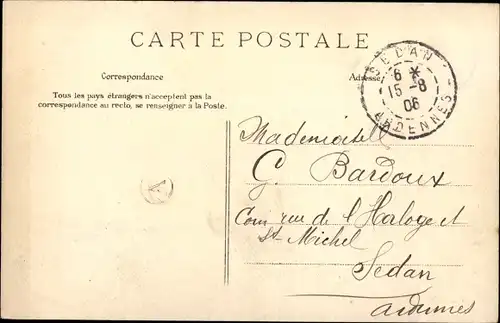 CARTE POSTALE
Correspondance
Adresse
Tous les pays étrangers n'acceptent pas la
correspondance au recto, se renseigner à la Poste.
SEDAN
6 *
15-8
06
ARDENNES
A
Mademoiselle
G. Bardoux
Coin rue de l'Horloge et
St Michel
Sedan
Ardennes